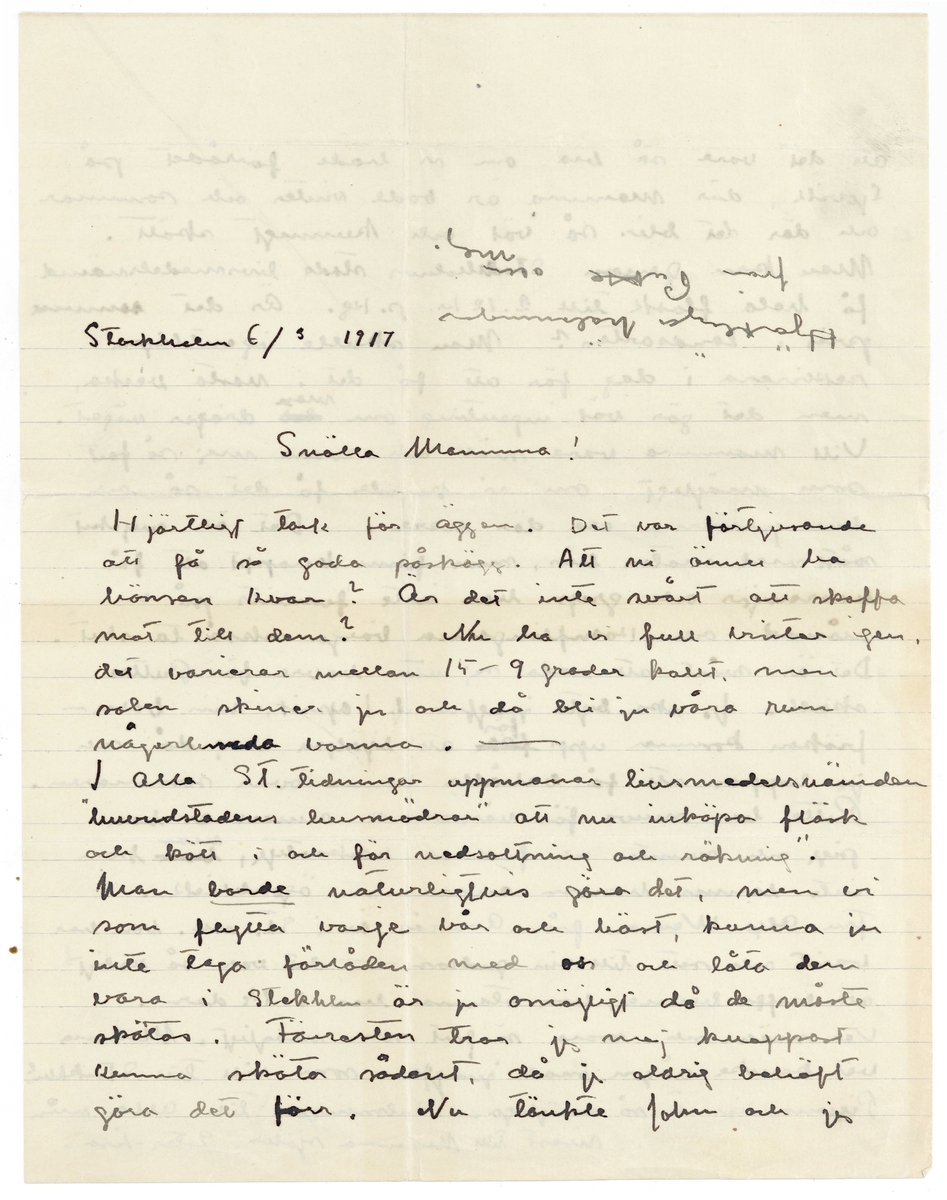 Hjärtliga hälsningar
från Putte och
mig.
Stockholm 6/3 1917
Snälla Mamma!
Hjärtligt tack för äggen. Det var förtjusande
att få så goda påskägg. Att ni ännu ha
hönsen kvar? Är det inte svårt att skaffa
mat till dem? Nu ha vi full vinter igen,
det varierar mellan 15–9 grader kallt, men
solen skiner ju och då bli ju våra rum
någorlunda varma. —
I alla St. tidningar uppmanar livsmedelsnämnden
"huvudstadens husmödrar" att nu inköpa fläsk
och kött, i och för nedsaltning och rökning".
Man borde naturligtvis göra det, men vi
som flytta varje vår och höst, kunna ju
inte taga förråden med oss och låta dem
vara i Stockholm är ju omöjligt då de måste
skötas. Förresten tror jag mej knappast
kunna sköta sådant, då jag aldrig behöft
göra det förr. Nu tänkte John och jag